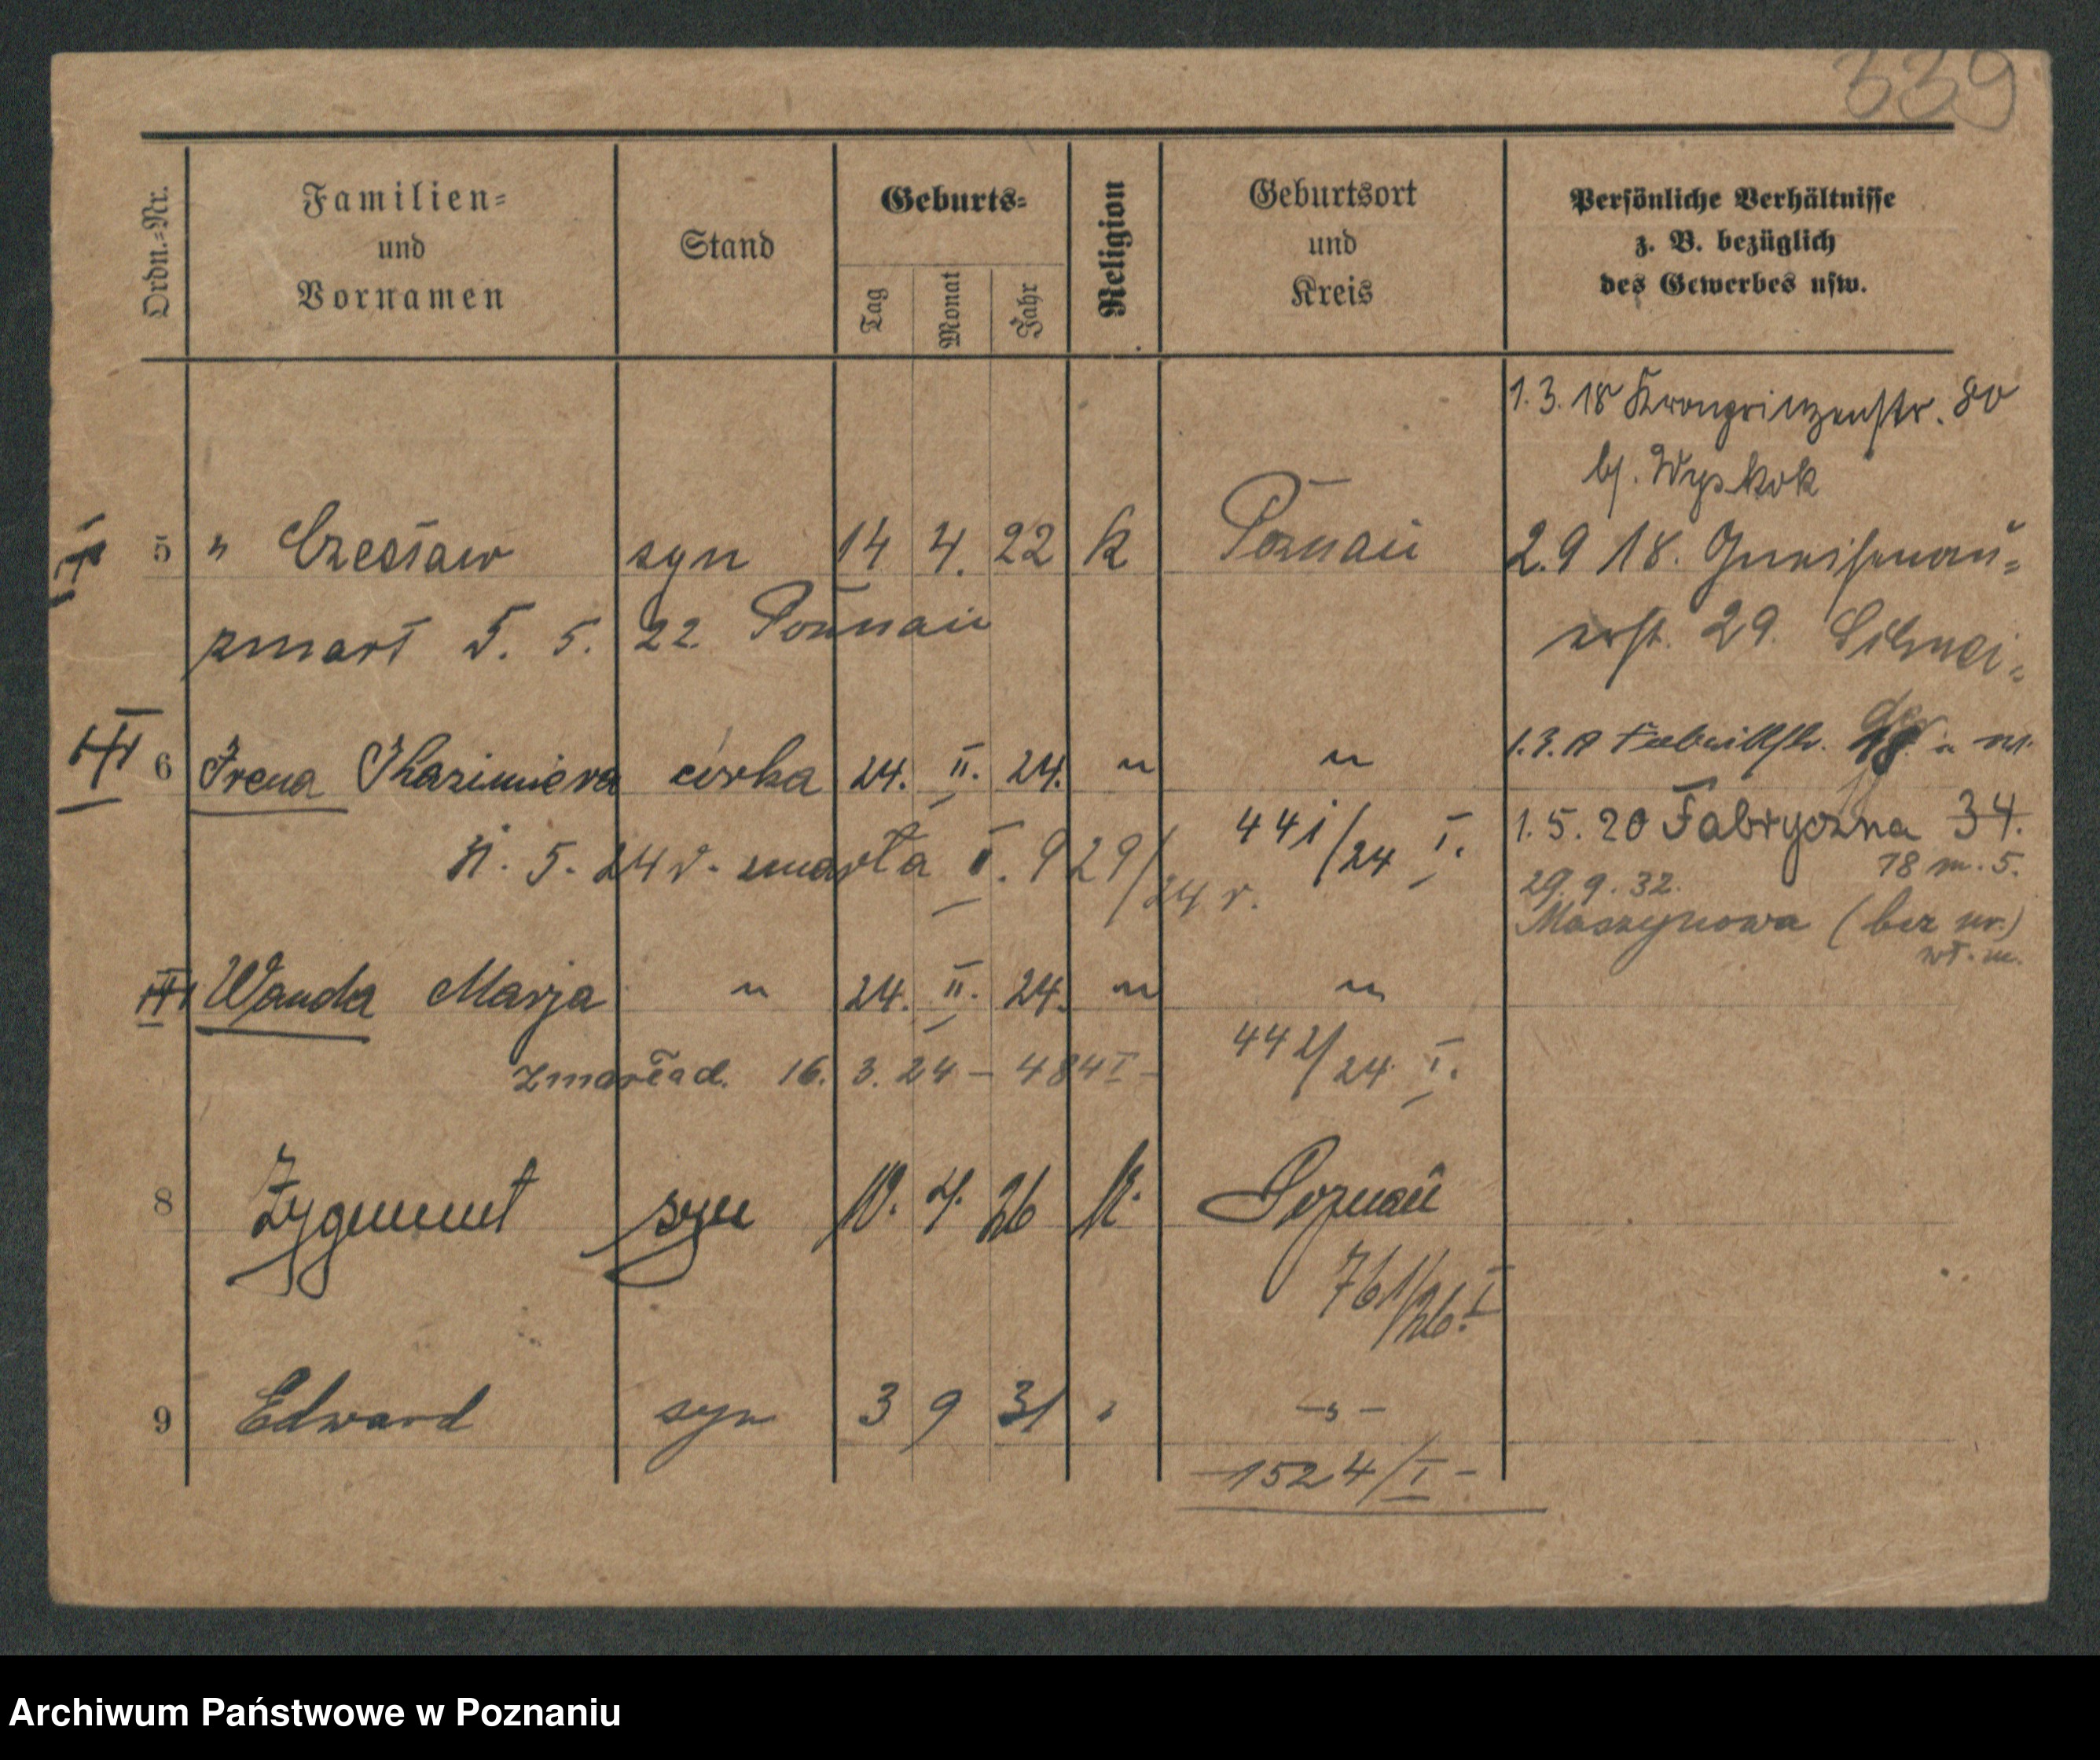 339
Ordn.-Nr.
Familien-
und
Vornamen
Stand
Geburts-
Tag
Monat
Jahr
Religion
Geburtsort
und
Kreis
Persönliche Verhältnisse
z. B. bezüglich
des Gewerbes usw.
1.3.18 Kronprinzenstr. 80
bj. Wyskok
5 " Czesław syn 14 4. 22 k Poznań 2.9 18. Gneisenau-
zmarł 5. 5. 22 Poznań 29.
6 Irena Kazimiera córka 24. II. 24. " "
441/24 I. 1.5.20 Fabryczna 34.
5. 24 r. zmarła I. 929/24 r. 18 m. 5.
29.9.32.
Maszynowa (bez nr.)
wł. m.
Wanda Marja " 24. II. 24. " "
442/24 I.
Zmarła d. 16. 3. 24 – 484 I –
8 Zygmunt syn 10. 4. 26 k. Poznań
761/26. I
9 Edward syn 3 9 31 " -"-
1524/I -
Archiwum Państwowe w Poznaniu